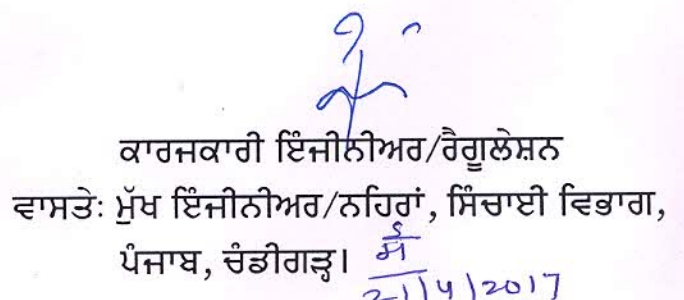 ਕਾਰਜਕਾਰੀ ਇੰਜੀਨੀਅਰ/ਰੈਗੂਲੇਸ਼ਨ
ਵਾਸਤੇ: ਮੁੱਖ ਇੰਜੀਨੀਅਰ/ਨਹਿਰਾਂ, ਸਿੰਚਾਈ ਵਿਭਾਗ,
ਪੰਜਾਬ, ਚੰਡੀਗੜ੍ਹ।
21/4/2017